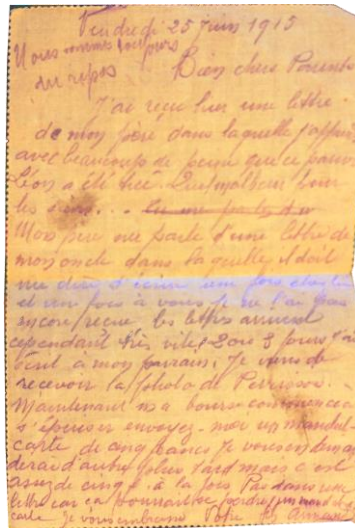 Vendredi 25 Juin 1915
Nous sommes toujours
au repos
Bien chers Parents
J'ai reçu hier une lettre
de mon frère dans laquelle j'apprends
avec beaucoup de peine que ce pauvre
Léon a été tué. Quel malheur pour
les
Mon frère me parle d'une lettre de
mon oncle dans laquelle il doit
me dire d'écrire une fois
et une fois à vous je ne l'ai pas
encore reçue les lettres arrivent
cependant très vite 2 ou 3 jours j'ai
écrit à mon parrain. Je viens de
recevoir la photo de
Maintenant ma bourse commence à
s'épuiser envoyez-moi un mandat-
carte de cinq francs Je vous en deman
derai d'autre plus tard mais c'est
assez de cinq f. à la fois Pas dans une
lettre car ça pourrait se perdre un mandat
carte Je vous embrasse Votre fils